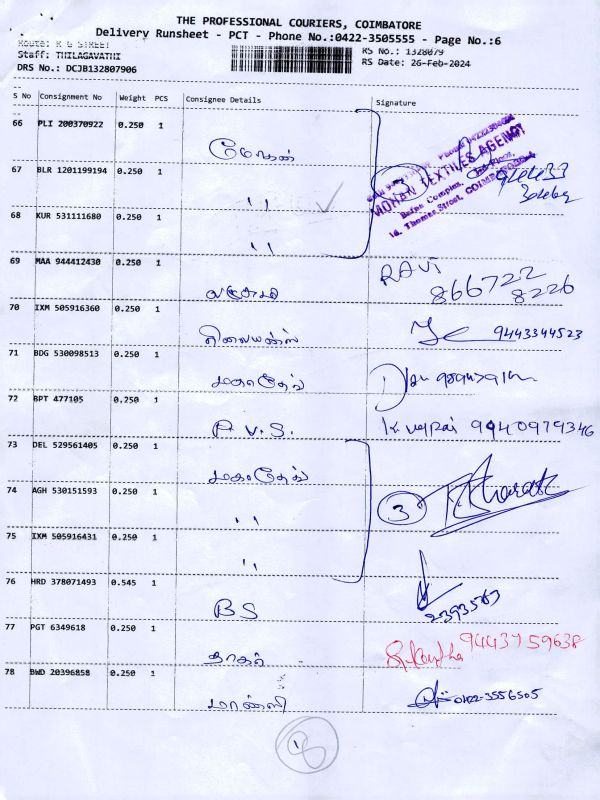 THE PROFESSIONAL COURIERS, COIMBATORE
Delivery Runsheet - PCT - Phone No.:0422-3505555 - Page No.:6
Route: K G STREET
Staff: THILAGAVATHI
DRS No.: DCJB132807906
RS No.: 1328079
RS Date: 26-Feb-2024
S No Consignment No Weight PCS Consignee Details Signature
66 PLI 200370922 0.250 1 மோகன்
MOHAN TEXTILES AGENCY
67 BLR 1201199194 0.250 1 〃 3
68 KUR 531111680 0.250 1 〃
69 MAA 944412430 0.250 1 RAVI 866722 8226
70 IXM 505916360 0.250 1 9443344523
71 BDG 530098513 0.250 1 மகாதேவ்
72 BPT 477105 0.250 1 P.V.S. 9440979346
73 DEL 529561405 0.250 1 மகாதேவ்
74 AGH 530151593 0.250 1 〃 3
75 IXM 505916431 0.250 1 〃
76 HRD 378071493 0.545 1 BS 2393563
77 PGT 6349618 0.250 1 9443759638
78 BWD 20396858 0.250 1 மான்ஸி 0422-3556505